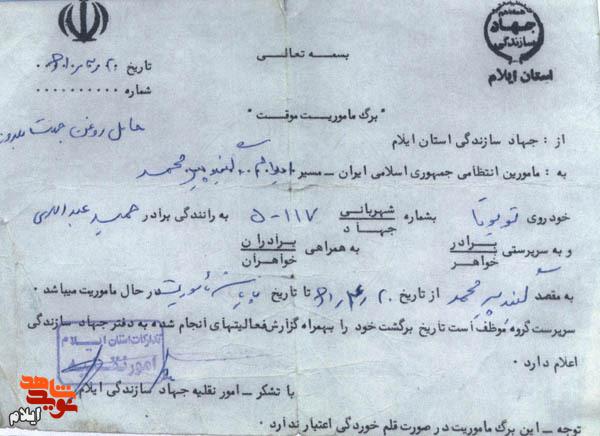 همه با هم
جهاد
سازندگی
استان ایلام
بسمه تعالی
تاریخ
شماره
"برگ ماموریت موقت"
حامل روغن جهت
از : جهاد سازندگی استان ایلام
به : مامورین انتظامی جمهوری اسلامی ایران ــ مسیر گنبد پیر محمد
خودروی تویوتا بشماره شهربانی جهاد ۱۱۷-۵ به رانندگی برادر حمید عبداللهی
و به سرپرستی برادر خواهر به همراهی برادران خواهران
به مقصد گنبد پیر محمد از تاریخ تا تاریخ پایان مأموریت در حال ماموریت میباشد .
سرپرست گروه موظف است تاریخ برگشت خود را بهمراه گزارش فعالیتهای انجام شده به دفتر جهاد سازندگی
اعلام دارد .
تدارکات استان ایلام
امور نقلیه
با تشکر ــ امور نقلیه جهاد سازندگی ایلام
توجه ــ این برگ ماموریت در صورت قلم خوردگی اعتبار ندارد .
نوید شاهد
ایلام